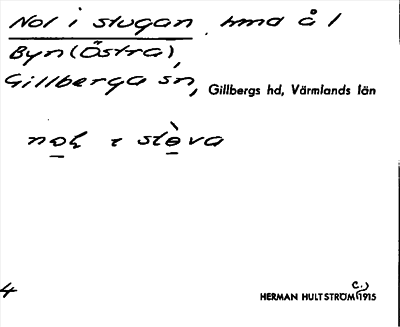 Nol i stugan. hmd å 1
Byn (Östra),
Gillberga sn, Gillbergs hd, Värmlands län
stòva
4
HERMAN HULTSTRÖM (c.) 1915